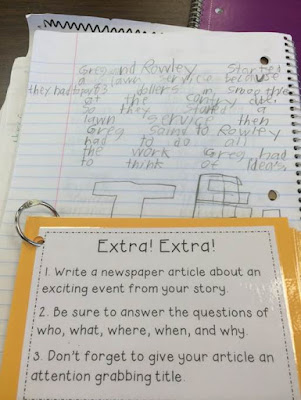 Greg and Rowley started
a lawn service because
they had to pay 83 dollers in smoothie
at the contry clue.
So they started a
lawn service then
Greg said to Rowley
had to do all
the work Greg had
to think of Ideas
Extra! Extra!
1. Write a newspaper article about an
exciting event from your story.
2. Be sure to answer the questions of
who, what, where, when, and why.
3. Don't forget to give your article an
attention grabbing title.